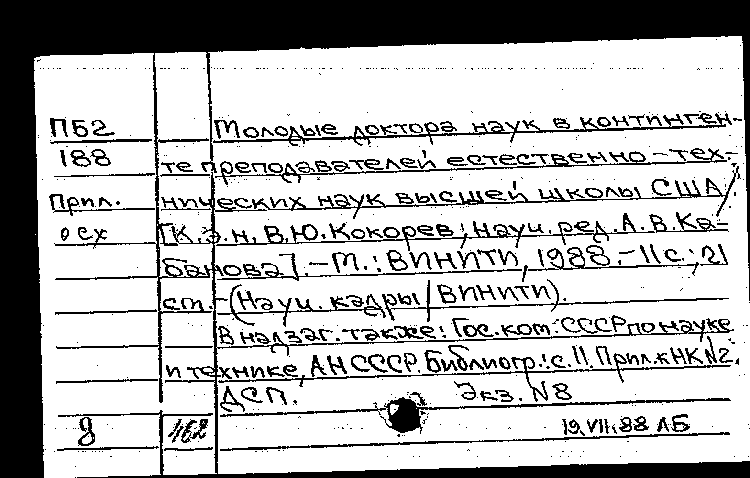 ПБ2 Молодые доктора наук в континген-
188 те преподавателей естественно-тех-
Прил. нических наук высшей школы США/
осх [К.э.н. В.Ю. Кокорев; науч. ред. А.В. Ка-
банова]. - М.: ВИНИТИ, 1988. - 11с.; 21
ст. - (Науч. кадры/ВИНИТИ).
В надзаг. также: Гос. ком. СССР по науке
и технике, АН СССР. Библиогр.: с. 11. Прил. к НК N2.
ДСП. Экз. N8
8 462 19.VII.88 ЛБ